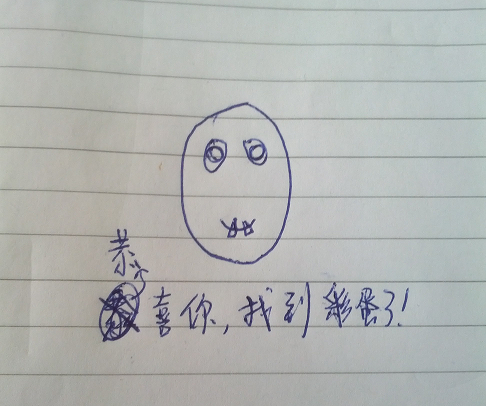 恭喜你,找到彩蛋了!